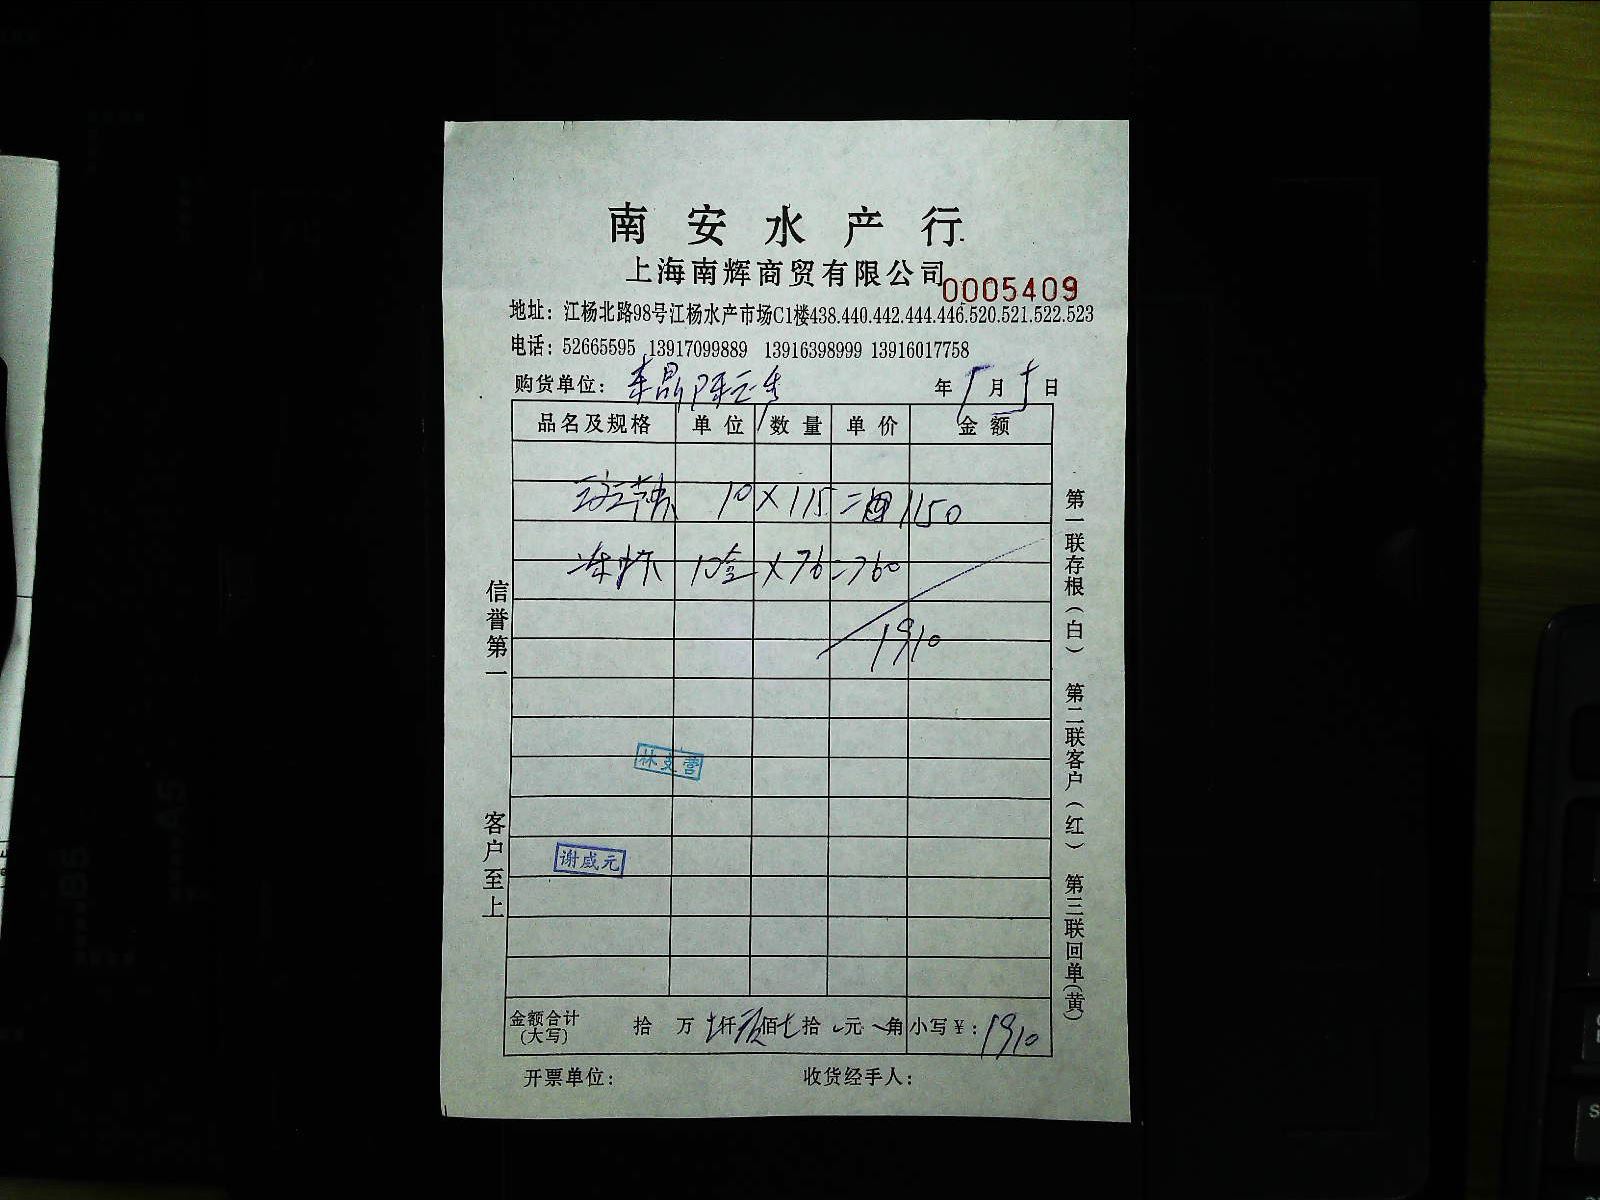 南安水产行
上海南辉商贸有限公司
0005409
地址：江杨北路98号江杨水产市场C1楼438.440.442.444.446.520.521.522.523
电话：52665595 13917099889 13916398999 13916017758
购货单位：
年 月 日
品名及规格 单位 数量 单价 金额
10 X 115 = 1150
10盒 X 76 = 760
1910
林文营
谢威元
金额合计(大写) 拾 万 仟 佰 拾 元 角 小写¥：1910
开票单位： 收货经手人：
信誉第一
客户至上
第一联存根(白) 第二联客户(红) 第三联回单(黄)